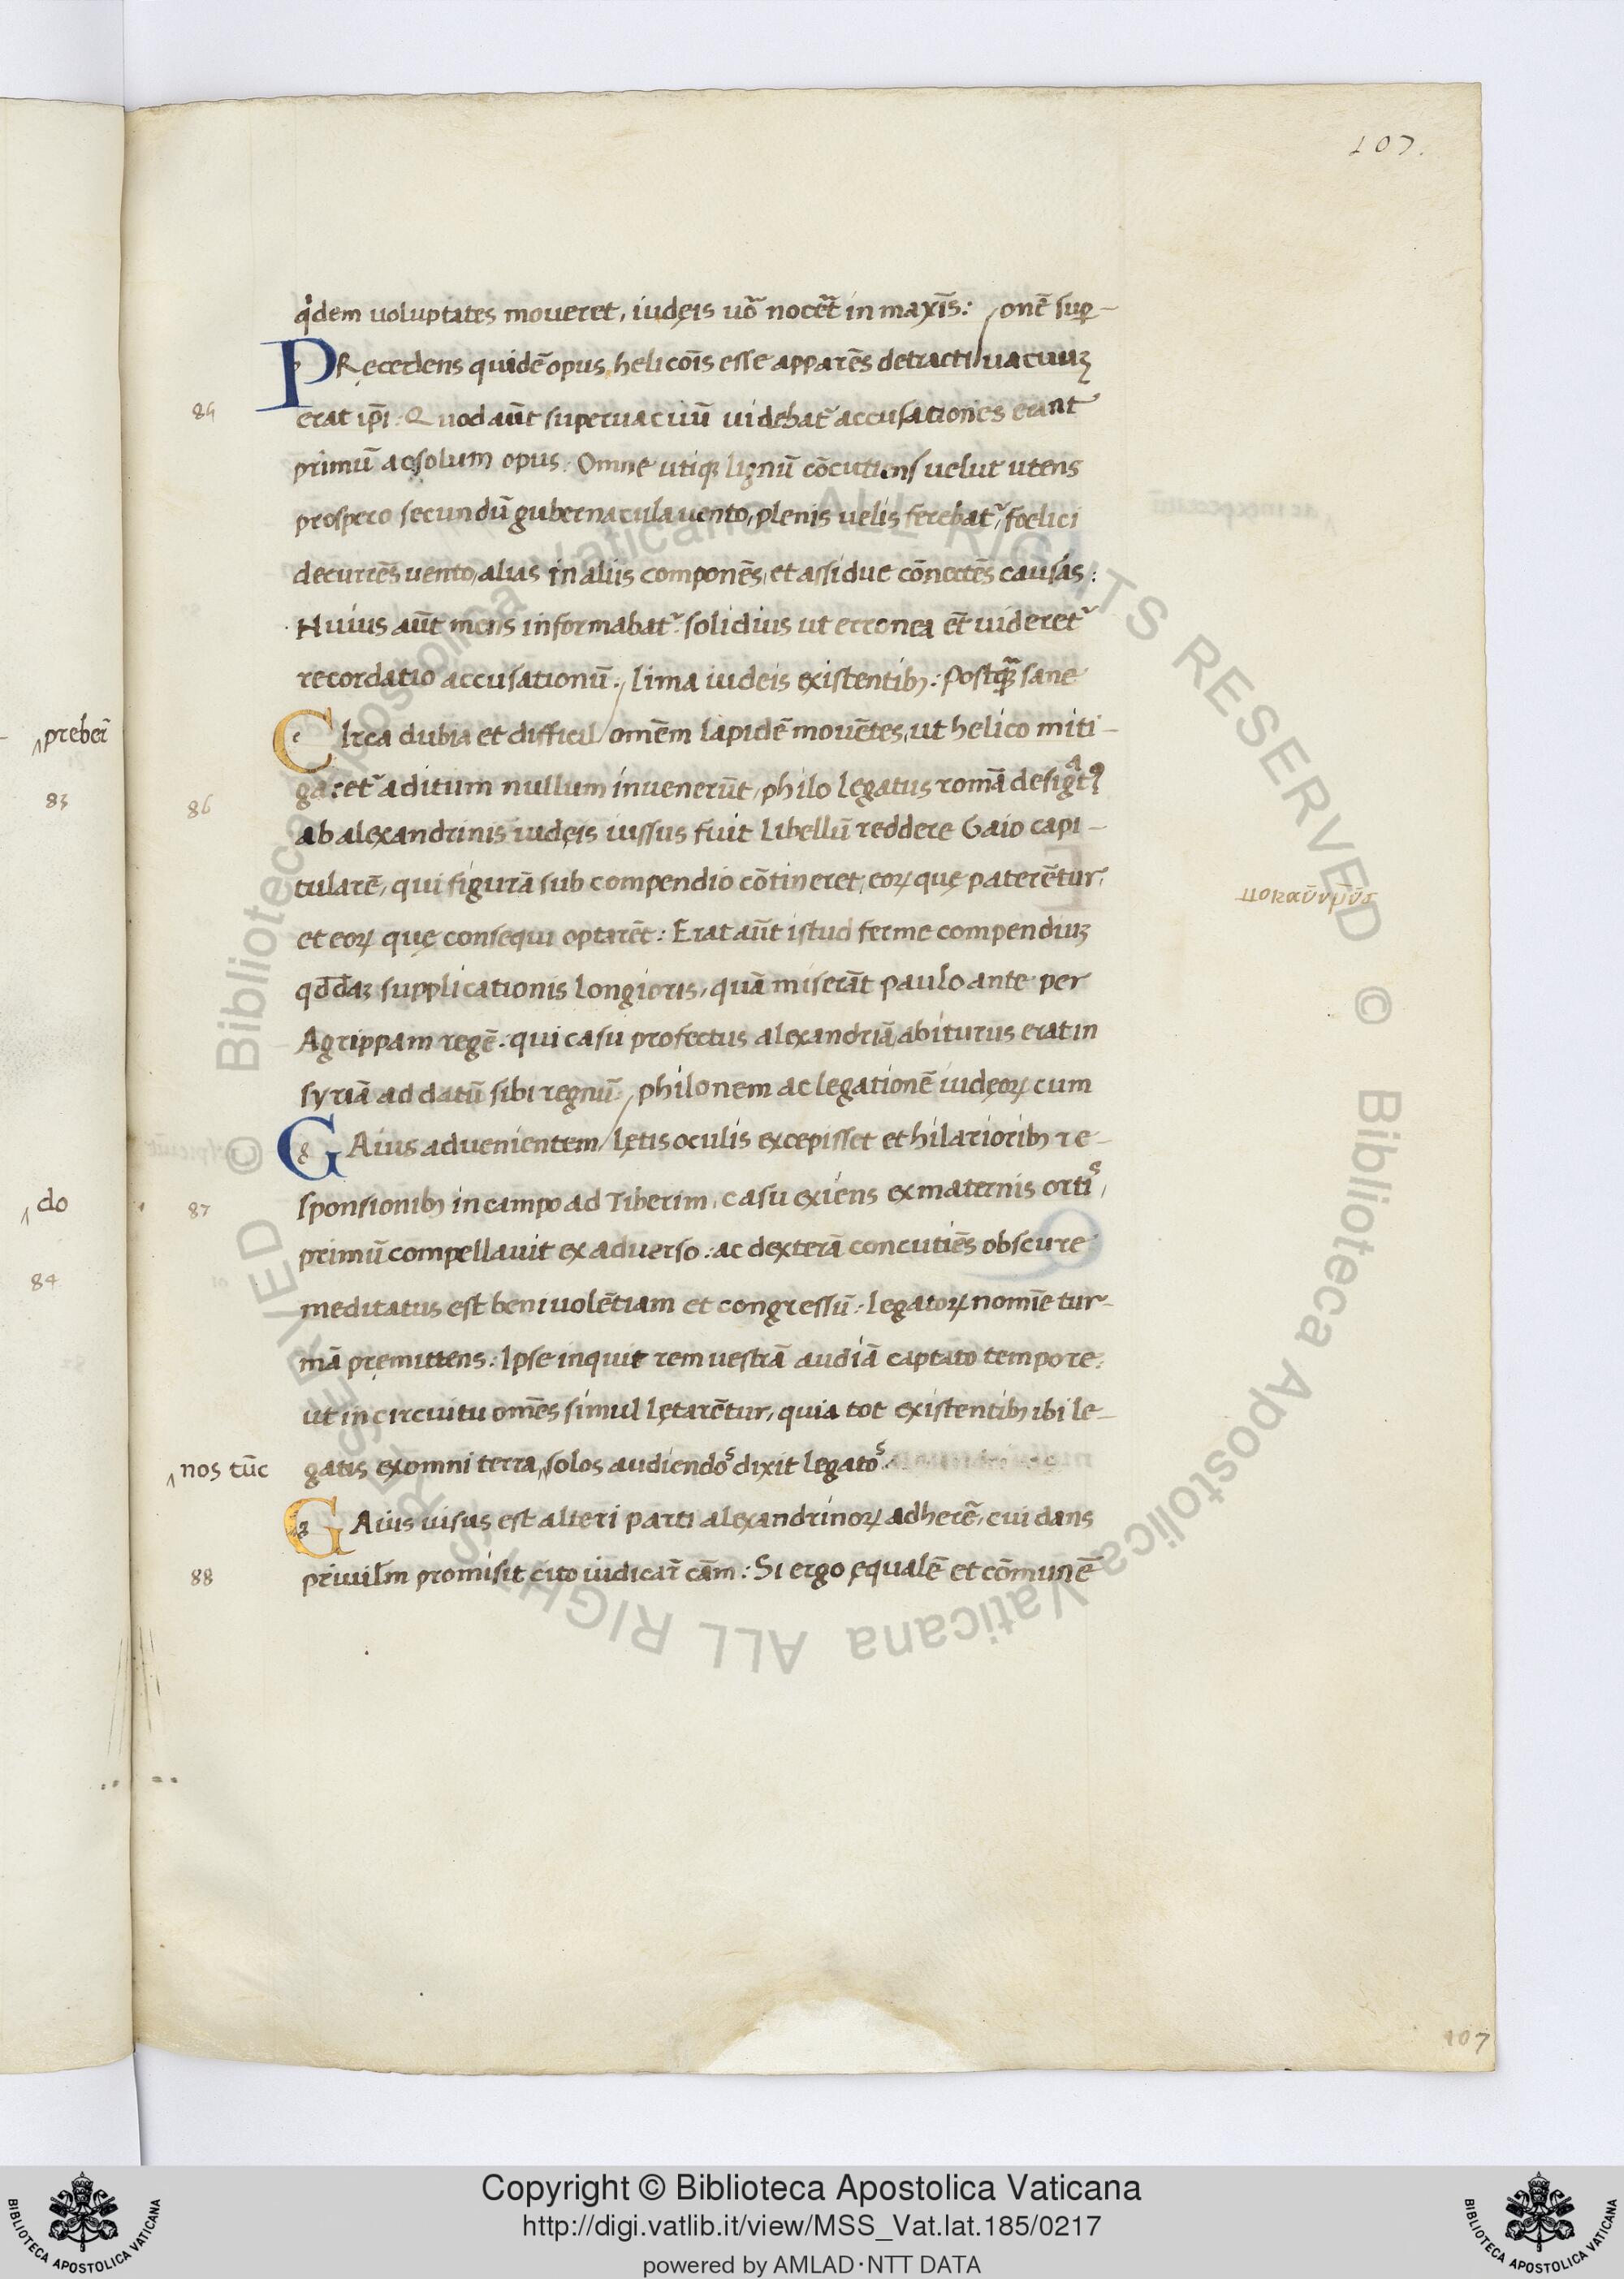 107.
q̇dem uoluptates moueret, iudęis uo᷑ nocēt in maxīs: onē suꝑ-
PRęcedens quidē opus, helicoīs esse apparēs detracti uacuuꝫ
erat ip̄i. Quod aūt superuacuū uidebat᷑ accusationes erant
primū ac solum opus. Omne utiqꝫ lignū cōcutiens uelut utens
prospero secundū gubernacula uento, plenis uelis ferebat᷑, foelici
decurrēs uento, alias in aliis componēs, et assidue cōnectēs causas:
Huius aūt mens informabat᷑ solidius ut erronea eē uideret᷑
recordatio accusationū. lima iudeis existentibꝫ: Postq̃ꝫ sane
CIrca dubia et difficil omēm lapidē mouētes, ut helico miti-
garet᷑ aditum nullum inuenerūt, philo legatus romā desigᵃtꝰ
ab alexandrinis iudęis iussus fuit libellū reddere Gaio capi-
tularē, qui figurā sub compendio cōtineret, eoꝝ quę paterētur,
et eoꝝ quę consequi optarēt: Erat aūt istud ferme compendiuꝫ
qd̄daꝫ supplicationis longioris, quā miserāt paulo ante per
Agrippam regē. qui casu profectus alexandriā, abiturus erat in
syriā ad datū sibi regnū, philonem ac legationē iudęoꝝ cum
GAius aduenientem lętis oculis excepisset et hilarioribꝫ re-
sponsionibꝫ in campo ad Tiberim, casu exiens ex maternis ortiˢ,
primū compellauit ex aduerso: ac dexterā concutiēs obscure
meditatus est beniuolētiam et congressū: legatoꝝ nomīe tur-
mā pręmittens: Ipse inquit rem uestrā audiā captato tempore:
ut in circuitu omēs simul lętarētur, quia tot existentibꝫ ibi le-
gatis ex omni terra, solos audiendoˢ dixit legatoˢ.
GAius uisus est alteri parti alexandrinoꝝ adherē, cui dans
priuilm̄ promisit cito iudicar̄ cām: Si ergo ęqualē et cōmunē
84
86
87
nos tūc
88
preber̄
83
do
84
107
Copyright © Biblioteca Apostolica Vaticana
http://digi.vatlib.it/view/MSS_Vat.lat.185/0217
powered by AMLAD·NTT DATA
© Biblioteca Apostolica Vaticana ALL RIGHTS RESERVED
© Biblioteca Apostolica Vaticana ALL RIGHTS RESERVED
BIBLIOTECA APOSTOLICA VATICANA
BIBLIOTECA APOSTOLICA VATICANA